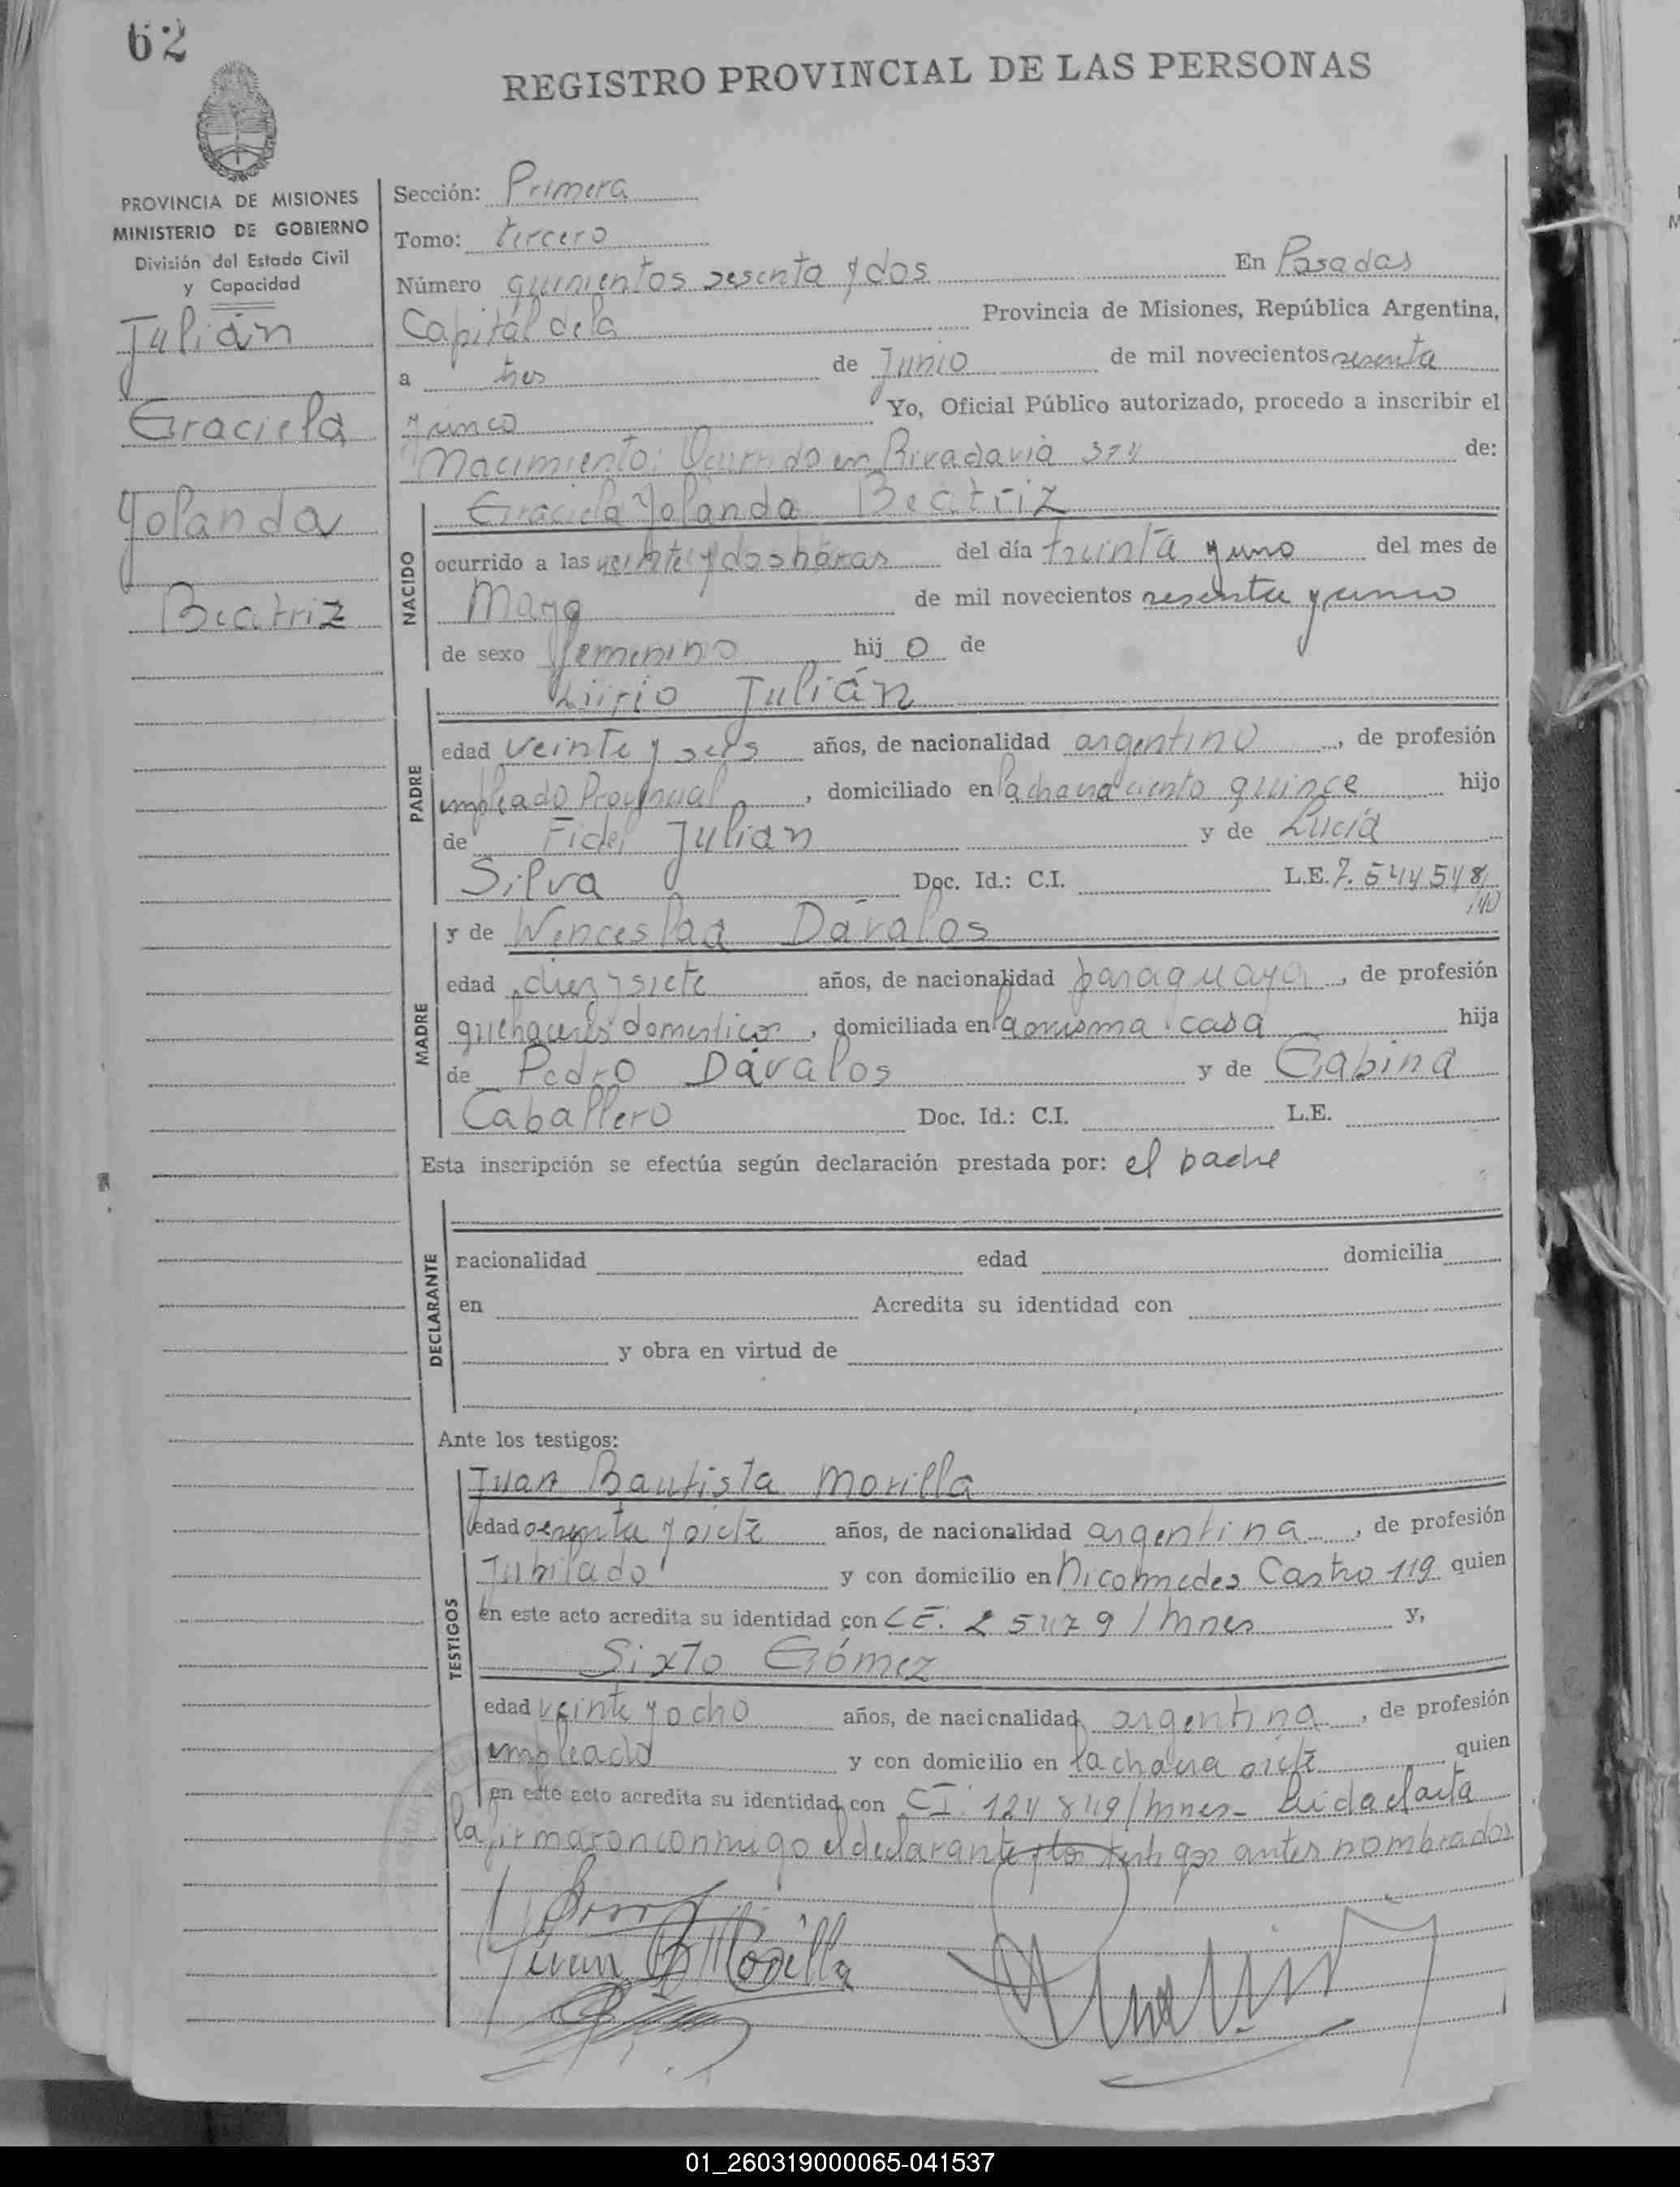 62
REGISTRO PROVINCIAL DE LAS PERSONAS
PROVINCIA DE MISIONES
MINISTERIO DE GOBIERNO
División del Estado Civil
y Capacidad
Julián
Graciela
Yolanda
Beatriz
Sección: Primera
Tomo: tercero
Número quinientos sesenta y dos En Posadas
Capital de la Provincia de Misiones, República Argentina,
a tres de Junio de mil novecientos sesenta
y cinco Yo, Oficial Público autorizado, procedo a inscribir el
Nacimiento: Ocurrido en Rivadavia de:
NACIDO
Graciela Yolanda Beatriz
ocurrido a las veinte y dos horas del día treinta y uno del mes de
Mayo de mil novecientos sesenta y cinco
de sexo femenino hij o de
PADRE
Lirio Julián
edad veinte y seis años, de nacionalidad argentino, de profesión
empleado Provincial, domiciliado en la chacra ciento quince hijo
de Fidel Julian y de Lucía
Silva Doc. Id.: C.I. L.E. 7.544548
MADRE
y de Wenceslaa Dávalos
edad diez y siete años, de nacionalidad paraguaya, de profesión
quehaceres domesticos, domiciliada en la misma casa hija
de Pedro Dávalos y de Gabina
Caballero Doc. Id.: C.I. L.E.
Esta inscripción se efectúa según declaración prestada por: el padre
DECLARANTE
nacionalidad edad domicilia
en Acredita su identidad con
y obra en virtud de
Ante los testigos:
TESTIGOS
Juan Bautista Morilla
edad sesenta y siete años, de nacionalidad argentina, de profesión
Jubilado y con domicilio en Nicomedes Castro 119 quien
en este acto acredita su identidad con 25479/Mnes y,
Sixto Gómez
edad veinte y ocho años, de nacionalidad argentina, de profesión
empleado y con domicilio en la chacra siete quien
en este acto acredita su identidad con CI. 124849/Mnes- Leida el acta
la firmaron conmigo el declarante y los testigos antes nombrados
Juan B Morilla
01_260319000065-041537